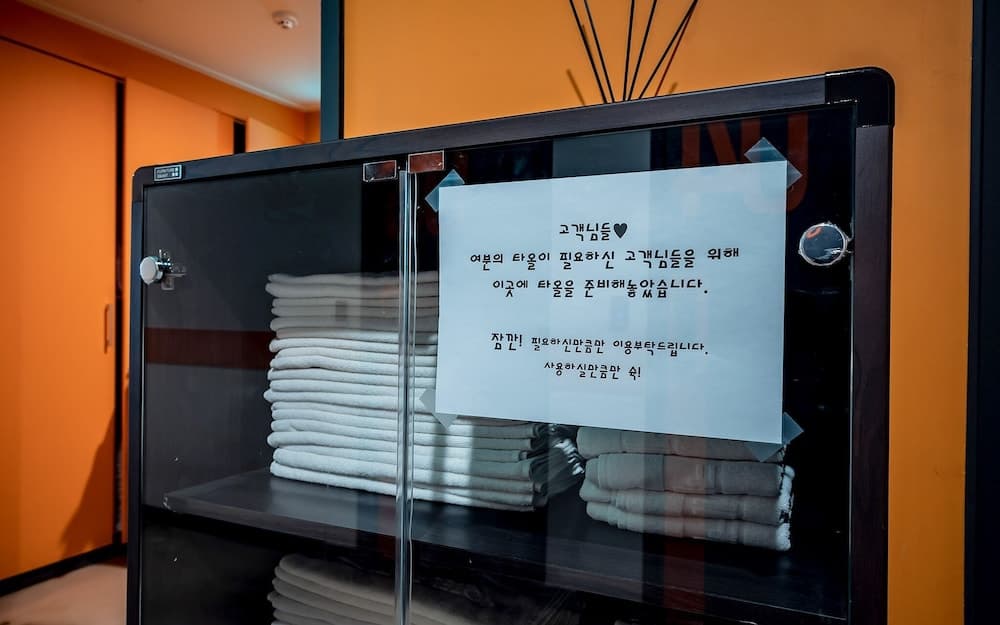 고객님들♥
여분의 타올이 필요하신 고객님들을 위해
이곳에 타올을 준비해놓았습니다.
잠깐! 필요하신만큼만 이용부탁드립니다.
사용하실만큼만 쉭!